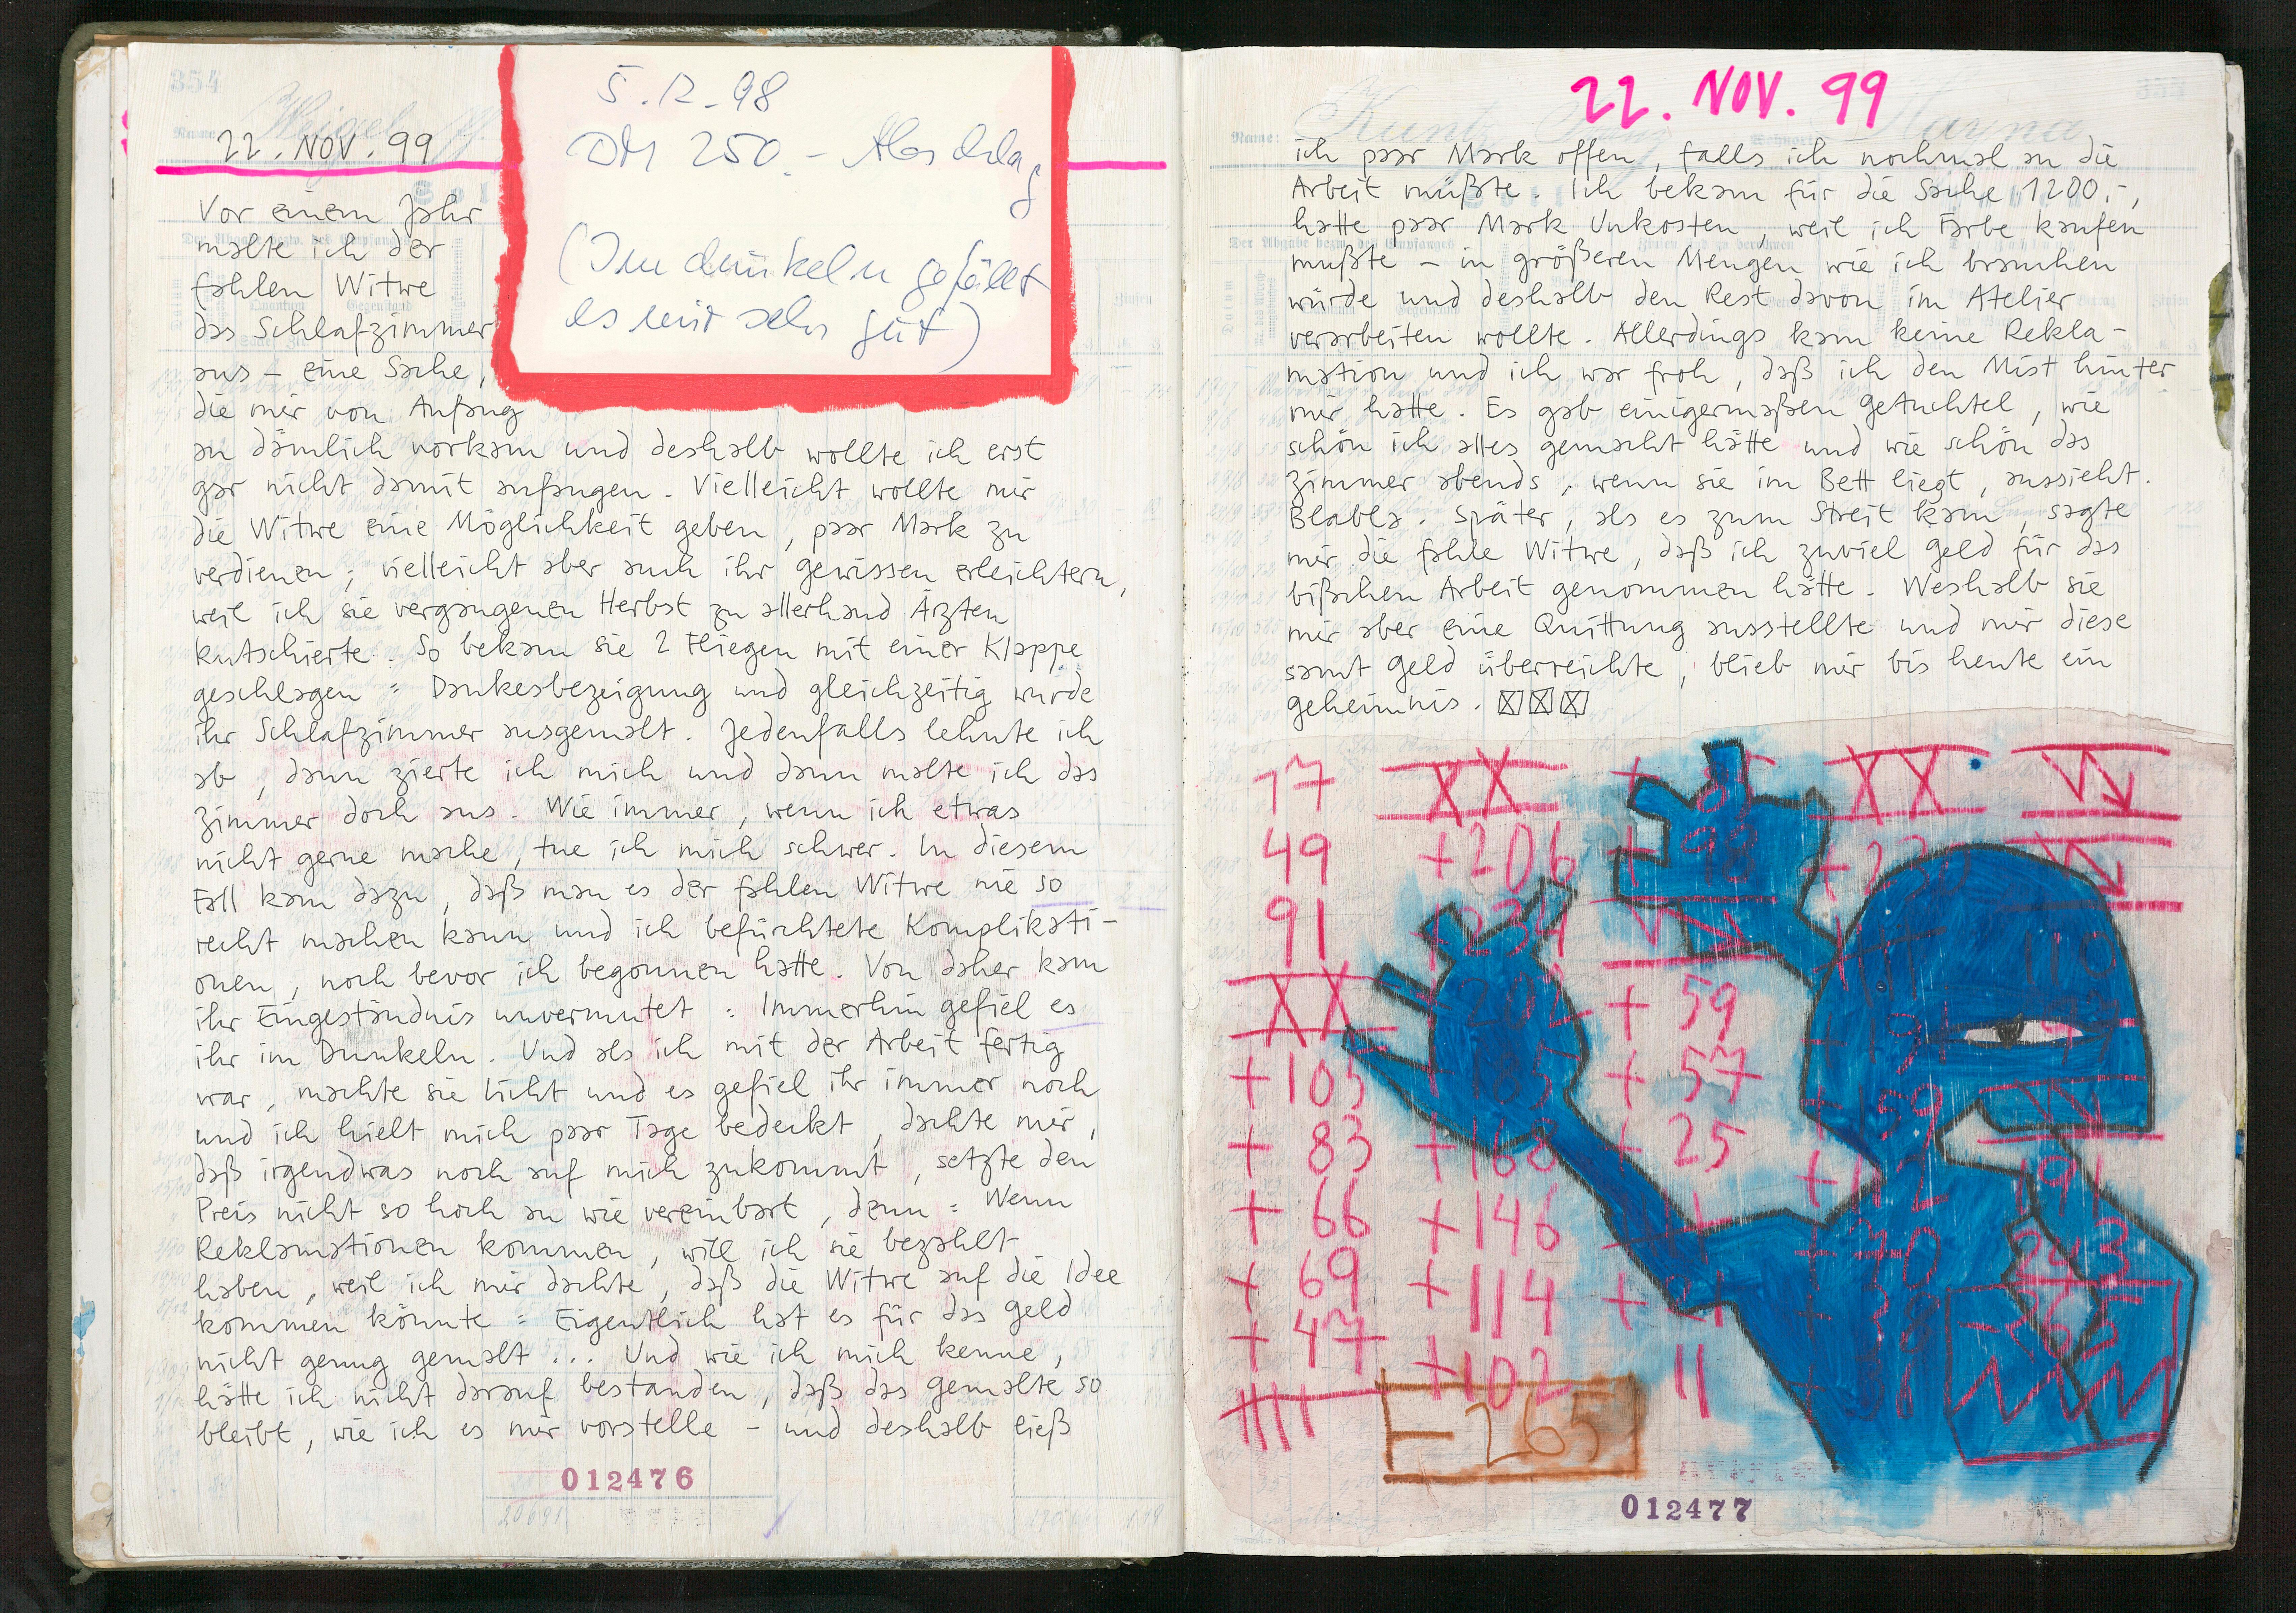 354
Name:
22. NOV. 99
5.12.98
DM 250.- Abschlag
(Im dunkeln gefällt
es mir sehr gut)
Vor einem Jahr
malte ich der
fahlen Witwe
das Schlafzimmer
aus – eine Sache,
die mir von Anfang
an dämlich vorkam und deshalb wollte ich erst
gar nicht damit anfangen. Vielleicht wollte mir
die Witwe eine Möglichkeit geben, paar Mark zu
verdienen; vielleicht aber auch ihr Gewissen erleichtern,
weil ich sie vergangenen Herbst zu allerhand Ärzten
kutschierte. So bekam sie 2 Fliegen mit einer Klappe
geschlagen: Dankesbezeigung und gleichzeitig wurde
ihr Schlafzimmer ausgemalt. Jedenfalls lehnte ich
ab, dann zierte ich mich und dann malte ich das
Zimmer doch aus. Wie immer, wenn ich etwas
nicht gerne mache, tue ich mich schwer. In diesem
Fall kam dazu, daß man es der fahlen Witwe nie so
recht machen kann und ich befürchtete Komplikati-
onen, noch bevor ich begonnen hatte. Von daher kam
ihr Eingeständnis unvermutet: Immerhin gefiel es
ihr im Dunkeln. Und als ich mit der Arbeit fertig
war, machte sie Licht und es gefiel ihr immer noch
und ich hielt mich paar Tage bedeckt, dachte mir,
daß irgendwas noch auf mich zukommt, setzte den
Preis nicht so hoch an wie vereinbart, denn: Wenn
Reklamationen kommen, will ich sie bezahlt
haben, weil ich mir dachte, daß die Witwe auf die Idee
kommen könnte: Eigentlich hat es für das Geld
nicht genug gemalt ... Und wie ich mich kenne,
hätte ich nicht darauf bestanden, daß das Gemalte so
bleibt, wie ich es mir vorstelle – und deshalb ließ
012476
22. NOV. 99
Name:
ich paar Mark offen, falls ich nochmal an die
Arbeit müßte. Ich bekam für die Sache 1200.-,
hatte paar Mark Unkosten, weil ich Farbe kaufen
mußte – in größeren Mengen wie ich brauchen
würde und deshalb den Rest davon im Atelier
verarbeiten wollte. Allerdings kam keine Rekla-
mation und ich war froh, daß ich den Mist hinter
mir hatte. Es gab einigermaßen Getuchtel, wie
schön ich alles gemacht hätte und wie schön das
Zimmer abends, wenn sie im Bett liegt, aussieht.
Blabla. Später, als es zum Streit kam, sagte
mir die fahle Witwe, daß ich zuviel Geld für das
bißchen Arbeit genommen hätte. Weshalb sie
mir aber eine Quittung ausstellte und mir diese
samt Geld überreichte, blieb mir bis heute ein
Geheimnis.
17 XX XX
49 +206 +98 +230
91 +234
XX +59
+105 +185 +57
+83 +168 +25 +59
+66 +146 +112 191
+69 +114 +21 243
+47 +102 11 +38 -262
-265
012477